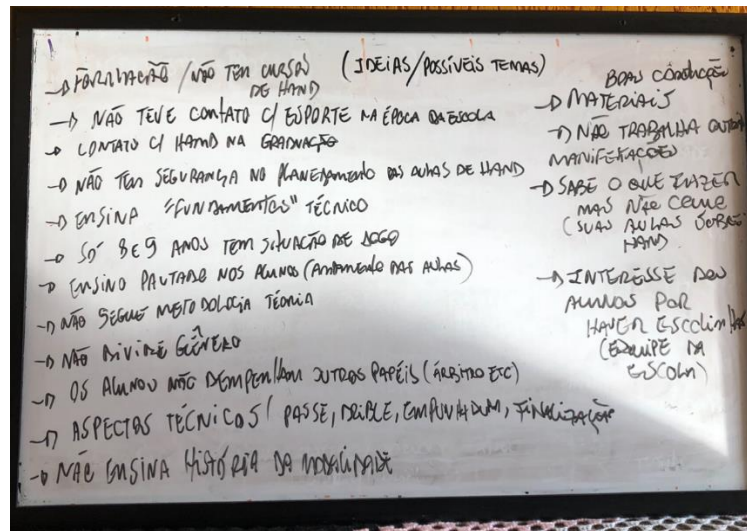 → FORMAÇÃO / NÃO TEM CURSOS DE HAND
(IDEIAS/POSSÍVEIS TEMAS)
→ NÃO TEVE CONTATO C/ ESPORTE NA ÉPOCA DA ESCOLA
→ CONTATO C/ HAND NA GRADUAÇÃO
→ NÃO TEM SEGURANÇA NO PLANEJAMENTO DAS AULAS DE HAND
→ ENSINA "FUNDAMENTOS" TÉCNICO
→ SÓ 8 E 9 ANOS TEM SITUAÇÃO DE JOGO
→ ENSINO PAUTADO NOS ALUNOS (ANDAMENTO DAS AULAS)
→ NÃO SEGUE METODOLOGIA TEÓRIA
→ NÃO DIVIDE GÊNERO
→ OS ALUNOS NÃO DEMPENHAM OUTROS PAPÉIS (ÁRBITRO ETC)
→ ASPECTOS TÉCNICOS / PASSE, DRIBLE, EMPUNHADURA, FINALIZAÇÃO
→ NÃO ENSINA HISTÓRIA DA MODALIDADE
BOAS CONDIÇÕES
→ MATERIAIS
→ NÃO TRABALHA OUTRAS
MANIFESTAÇÕES
→ SABE O QUE FAZER
MAS NÃO COMO
(SUAS AULAS SOBRE
HAND
→ INTERESSE DOS
ALUNOS POR
HAVER ESCOLINHAS
(EQUIPE DA
ESCOLA)